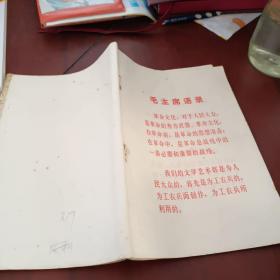 毛主席语录
革命文化，对于人民大众，
是革命的有力武器。革命文化，
在革命前，是革命的思想准备；
在革命中，是革命总战线中的
一条必要和重要的战线。
我们的文学艺术都是为人
民大众的，首先是为工农兵的，
为工农兵而创作，为工农兵所
利用的。